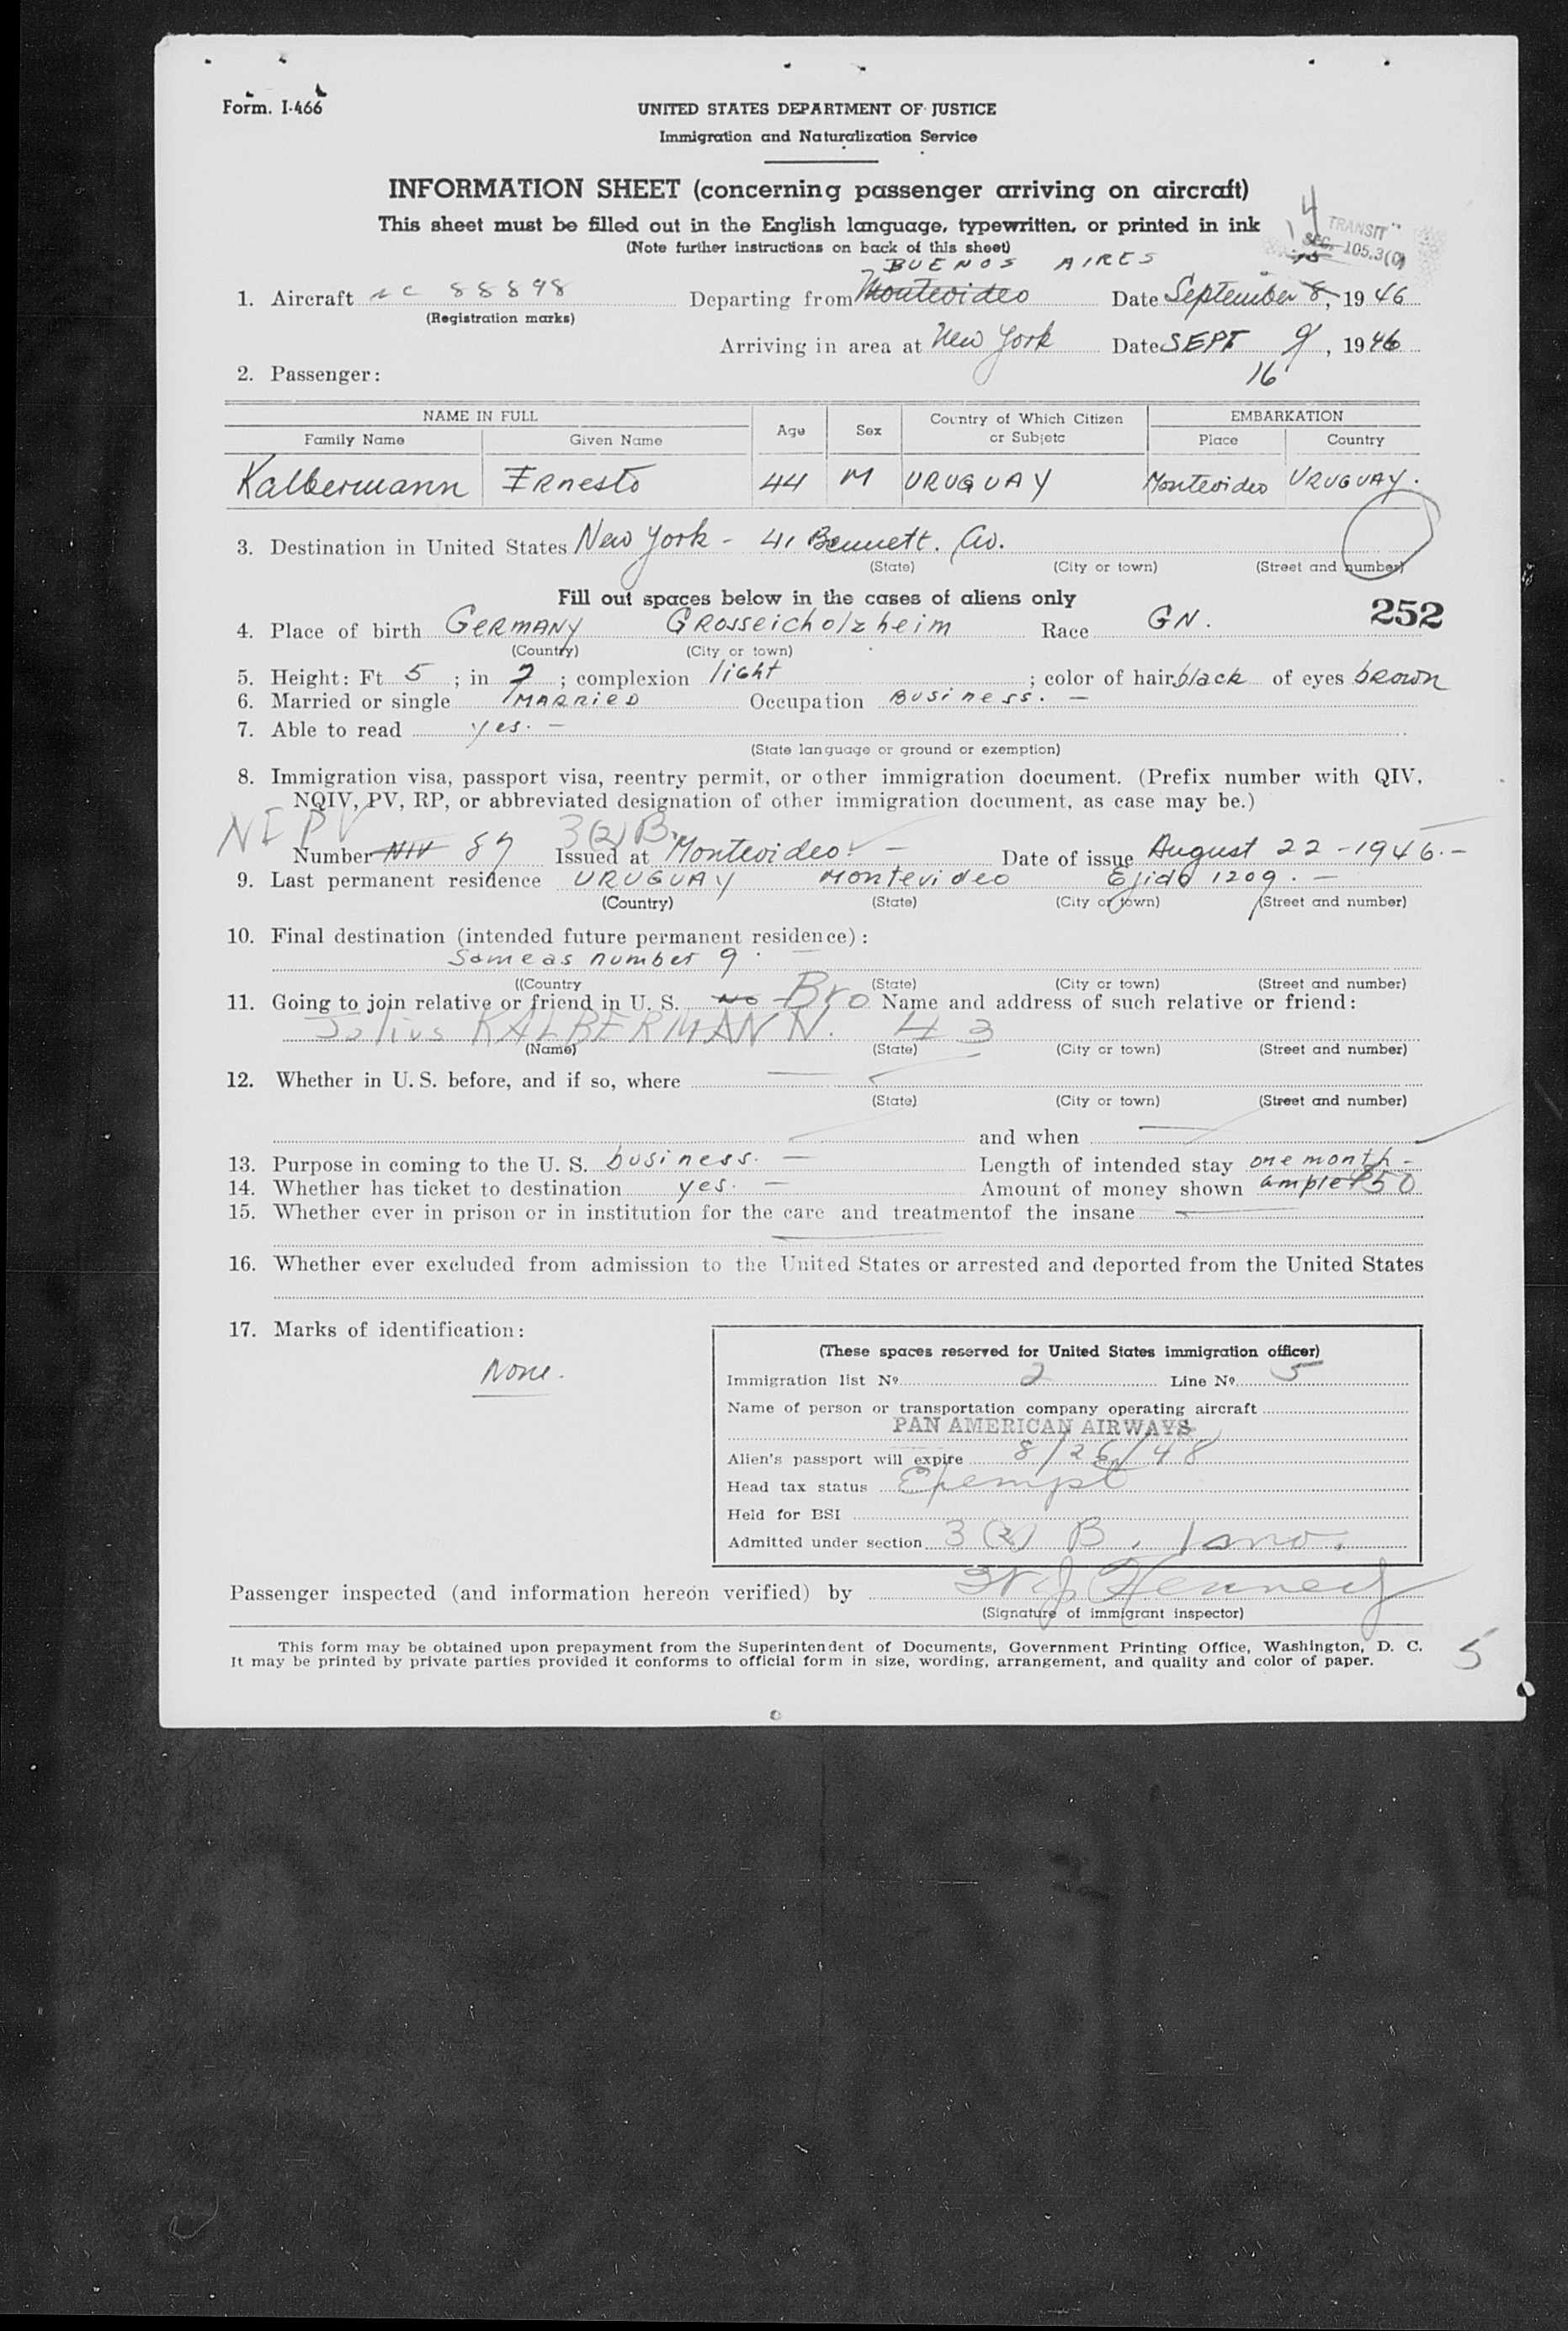 Form. I-466
UNITED STATES DEPARTMENT OF JUSTICE
Immigration and Naturalization Service
INFORMATION SHEET (concerning passenger arriving on aircraft)
This sheet must be filled out in the English language, typewritten, or printed in ink
(Note further instructions on back of this sheet)
4 TRANSIT
SEC. 105.3(C)
BUENOS AIRES
15
1. Aircraft NC 88898 Departing from Montevideo Date September 8, 1946
(Registration marks)
Arriving in area at New York Date SEPT 9, 1946
16
2. Passenger:
NAME IN FULL Age Sex Country of Which Citizen or Subjetc EMBARKATION
Family Name Given Name Place Country
Kalbermann Ernesto 44 M URUGUAY Montevideo URUGUAY.
3. Destination in United States New York - 41 Bennett. Av.
(State) (City or town) (Street and number)
Fill out spaces below in the cases of aliens only
252
4. Place of birth GERMANY GROSSEICHOLZHEIM Race GN.
(Country) (City or town)
5. Height: Ft 5 ; in 7 ; complexion light ; color of hair black of eyes brown
6. Married or single MARRIED Occupation Business. —
7. Able to read yes. —
(State language or ground or exemption)
8. Immigration visa, passport visa, reentry permit, or other immigration document. (Prefix number with QIV,
NQIV, PV, RP, or abbreviated designation of other immigration document, as case may be.)
NI PV 3(2)B.
Number NIV 87 Issued at Montevideo. — Date of issue August 22-1946.-
9. Last permanent residence URUGUAY Montevideo Ejido 1209. —
(Country) (State) (City or town) (Street and number)
10. Final destination (intended future permanent residence):
Same as number 9.
((Country (State) (City or town) (Street and number)
11. Going to join relative or friend in U. S. No Bro Name and address of such relative or friend:
Julius KALBERMANN. 43
(Name) (State) (City or town) (Street and number)
12. Whether in U. S. before, and if so, where —
(State) (City or town) (Street and number)
and when —
13. Purpose in coming to the U. S. business. — Length of intended stay one month-
14. Whether has ticket to destination yes. — Amount of money shown ample $50
15. Whether ever in prison or in institution for the care and treatmentof the insane —
16. Whether ever excluded from admission to the United States or arrested and deported from the United States
17. Marks of identification:
None.
(These spaces reserved for United States immigration officer)
Immigration list Nº 2 Line Nº 5
Name of person or transportation company operating aircraft
PAN AMERICAN AIRWAYS
Alien's passport will expire 8/26/48
Head tax status Exempt
Held for BSI
Admitted under section 3(2) B. 1 mo.
Passenger inspected (and information hereon verified) by Kennedy
(Signature of immigrant inspector)
This form may be obtained upon prepayment from the Superintendent of Documents, Government Printing Office, Washington, D. C.
It may be printed by private parties provided it conforms to official form in size, wording, arrangement, and quality and color of paper.
5